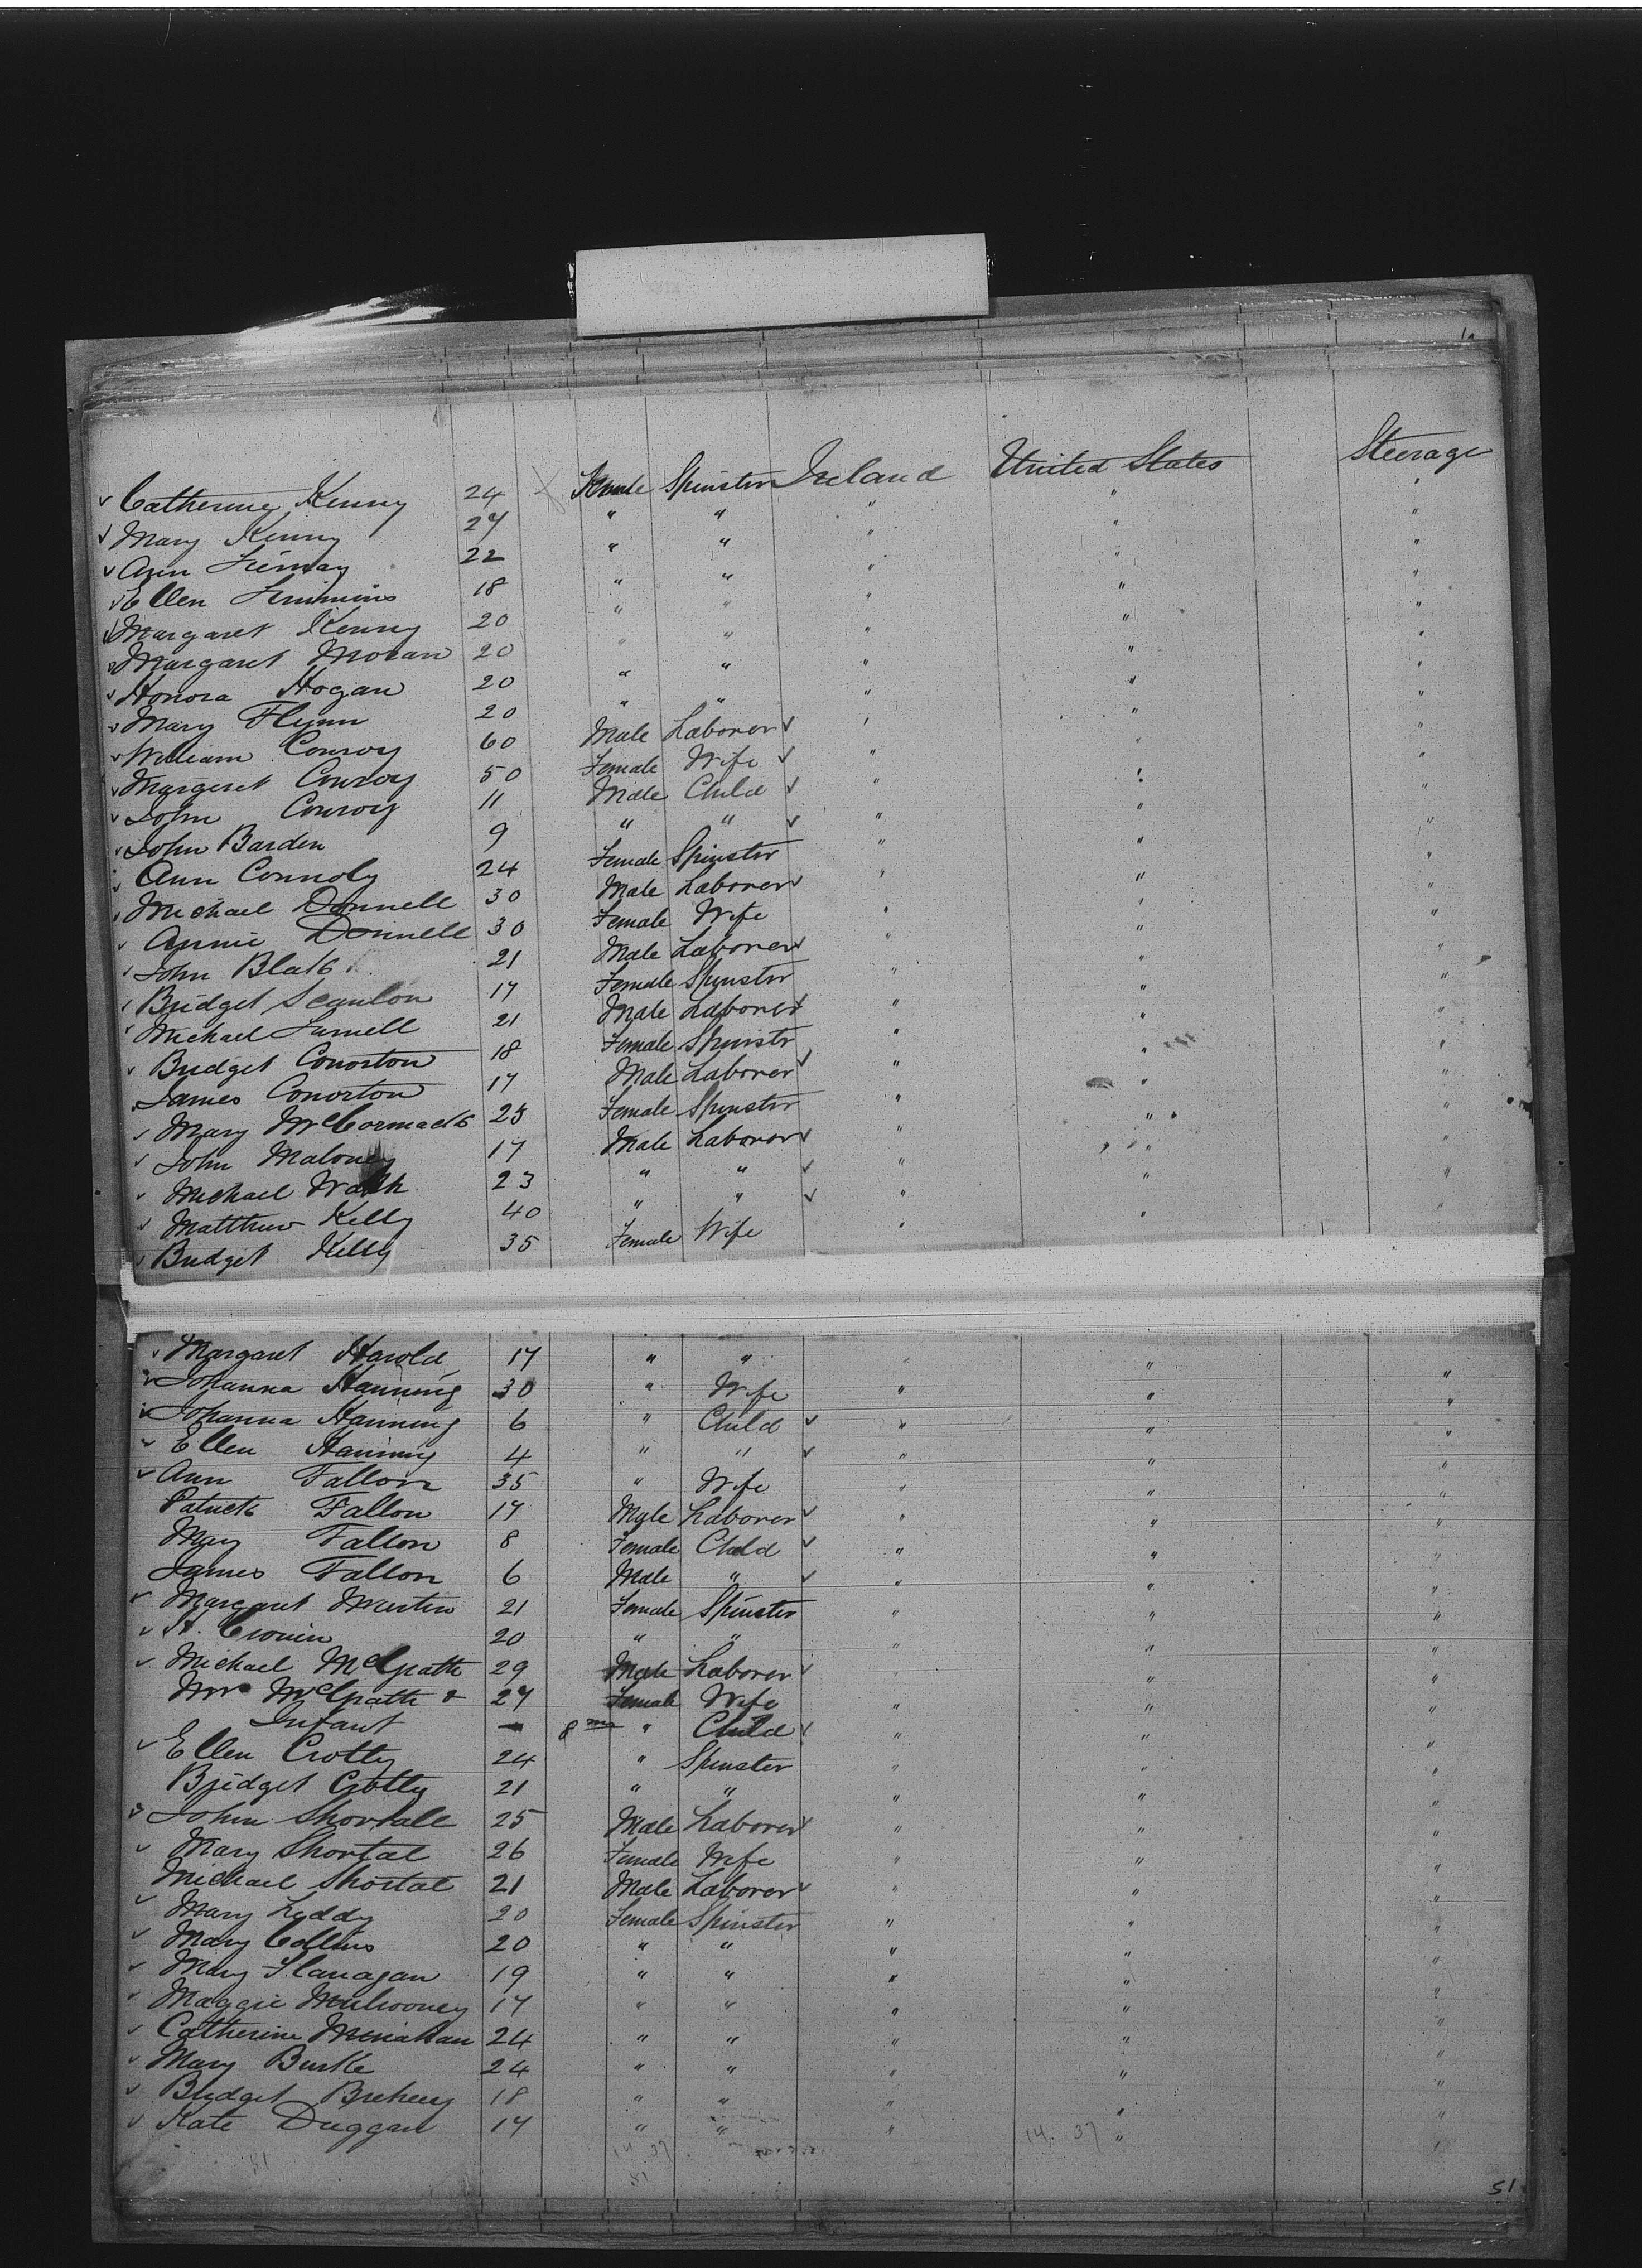 Catherine Kenny 24 Female Spinster Ireland United States Steerage
Mary Kenny 27 " " " " "
Ann 22 " " " " "
Ellen 18 " " " " "
Margaret Kenny 20 " " " " "
Margaret Moran 20 " " " " "
Honora Hogan 20 " " " " "
Mary Flynn 20 " " " " "
William Conroy 60 Male Laborer " " "
Margaret Conroy 50 Female Wife " " "
John Conroy 11 Male Child " " "
John Barden 9 " " " " "
Ann Connoly 24 Female Spinster " " "
Michael Donnell 30 Male Laborer " " "
Annie Donnell 30 Female Wife " " "
John Blake 21 Male Laborer " " "
Bridget Scanlon 17 Female Spinster " " "
Michael 21 Male Laborer " " "
Bridget Conorton 18 Female Spinster " " "
James Conorton 17 Male Laborer " " "
Mary McCormack 25 Female Spinster " " "
John Maloney 17 Male Laborer " " "
Michael Walsh 23 " " " " "
Matthew Kelly 40 " " " " "
Bridget Kelly 35 Female Wife " " "
Margaret Harold 17 " " " " "
Johanna Hanning 30 " Wife " " "
Johanna Hanning 6 " Child " " "
Ellen Hanning 4 " " " " "
Ann Fallon 35 " Wife " " "
Patrick Fallon 17 Male Laborer " " "
Mary Fallon 8 Female Child " " "
James Fallon 6 Male " " " "
Margaret Martin 21 Female Spinster " " "
Cronin 20 " " " " "
Michael McGrath 29 Male Laborer " " "
Mrs McGrath & 27 Female Wife " " "
Infant - 8 mo " Child " " "
Ellen Crotty 24 " Spinster " " "
Bridget Crotty 21 " " " " "
John Shortall 25 Male Laborer " " "
Mary Shortal 26 Female Wife " " "
Michael Shortal 21 Male Laborer " " "
Mary Leddy 20 Female Spinster " " "
Mary Collins 20 " " " " "
Mary Flanagan 19 " " " " "
Maggie Mulrooney 17 " " " " "
Catherine Minahan 24 " " " " "
Mary Burke 24 " " " " "
Bridget 18 " " " " "
Kate Duggan 17 " " " " "
14 37 14. 37
51 51
51